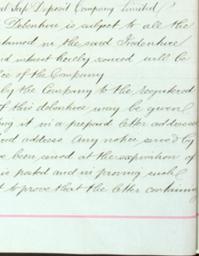 Safe Deposit Company Limited
Debenture is subject to all the
contained in the said Indenture
and interest hereby secured will be
of the Company
by the Company to the registered
of this debenture may be given
it in a prepaid letter addressed
address Any notice served by
been served at the expiration of
is posted and in proving such
to prove that the letter containing